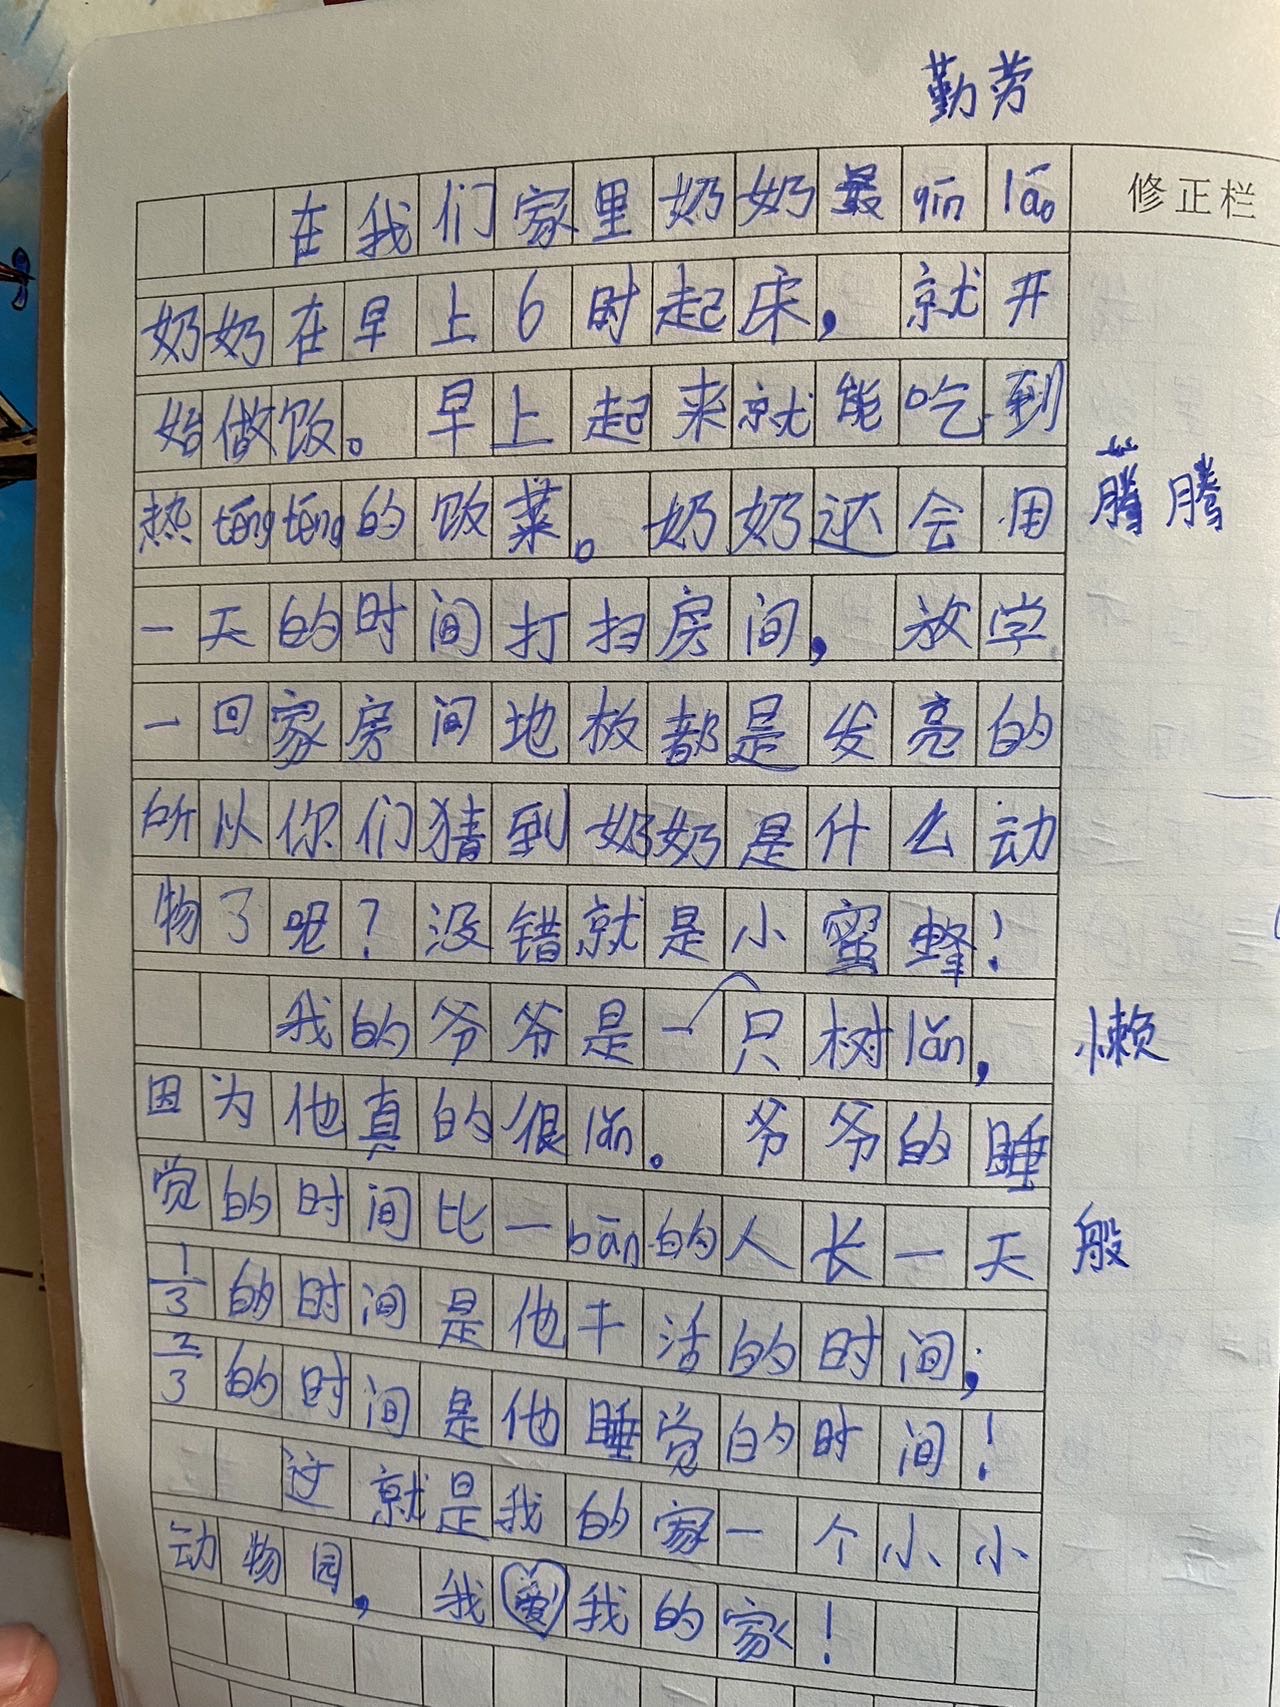 勤劳
在我们家里奶奶最qīn láo
修正栏
奶奶在早上6时起床，就开
始做饭。早上起来就能吃到
热téngténg的饭菜。奶奶还会用
腾腾
一天的时间打扫房间，放学
一回家房间地板都是发亮的
所以你们猜到奶奶是什么动
物了吧？没错就是小蜜蜂！
我的爷爷是一只树lǎn，
懒
因为他真的很lǎn。爷爷的睡
觉的时间比一bān的人长一天
般
1/3的时间是他干活的时间；
2/3的时间是他睡觉的时间！
这就是我的家一个小小
动物园，我爱我的家！